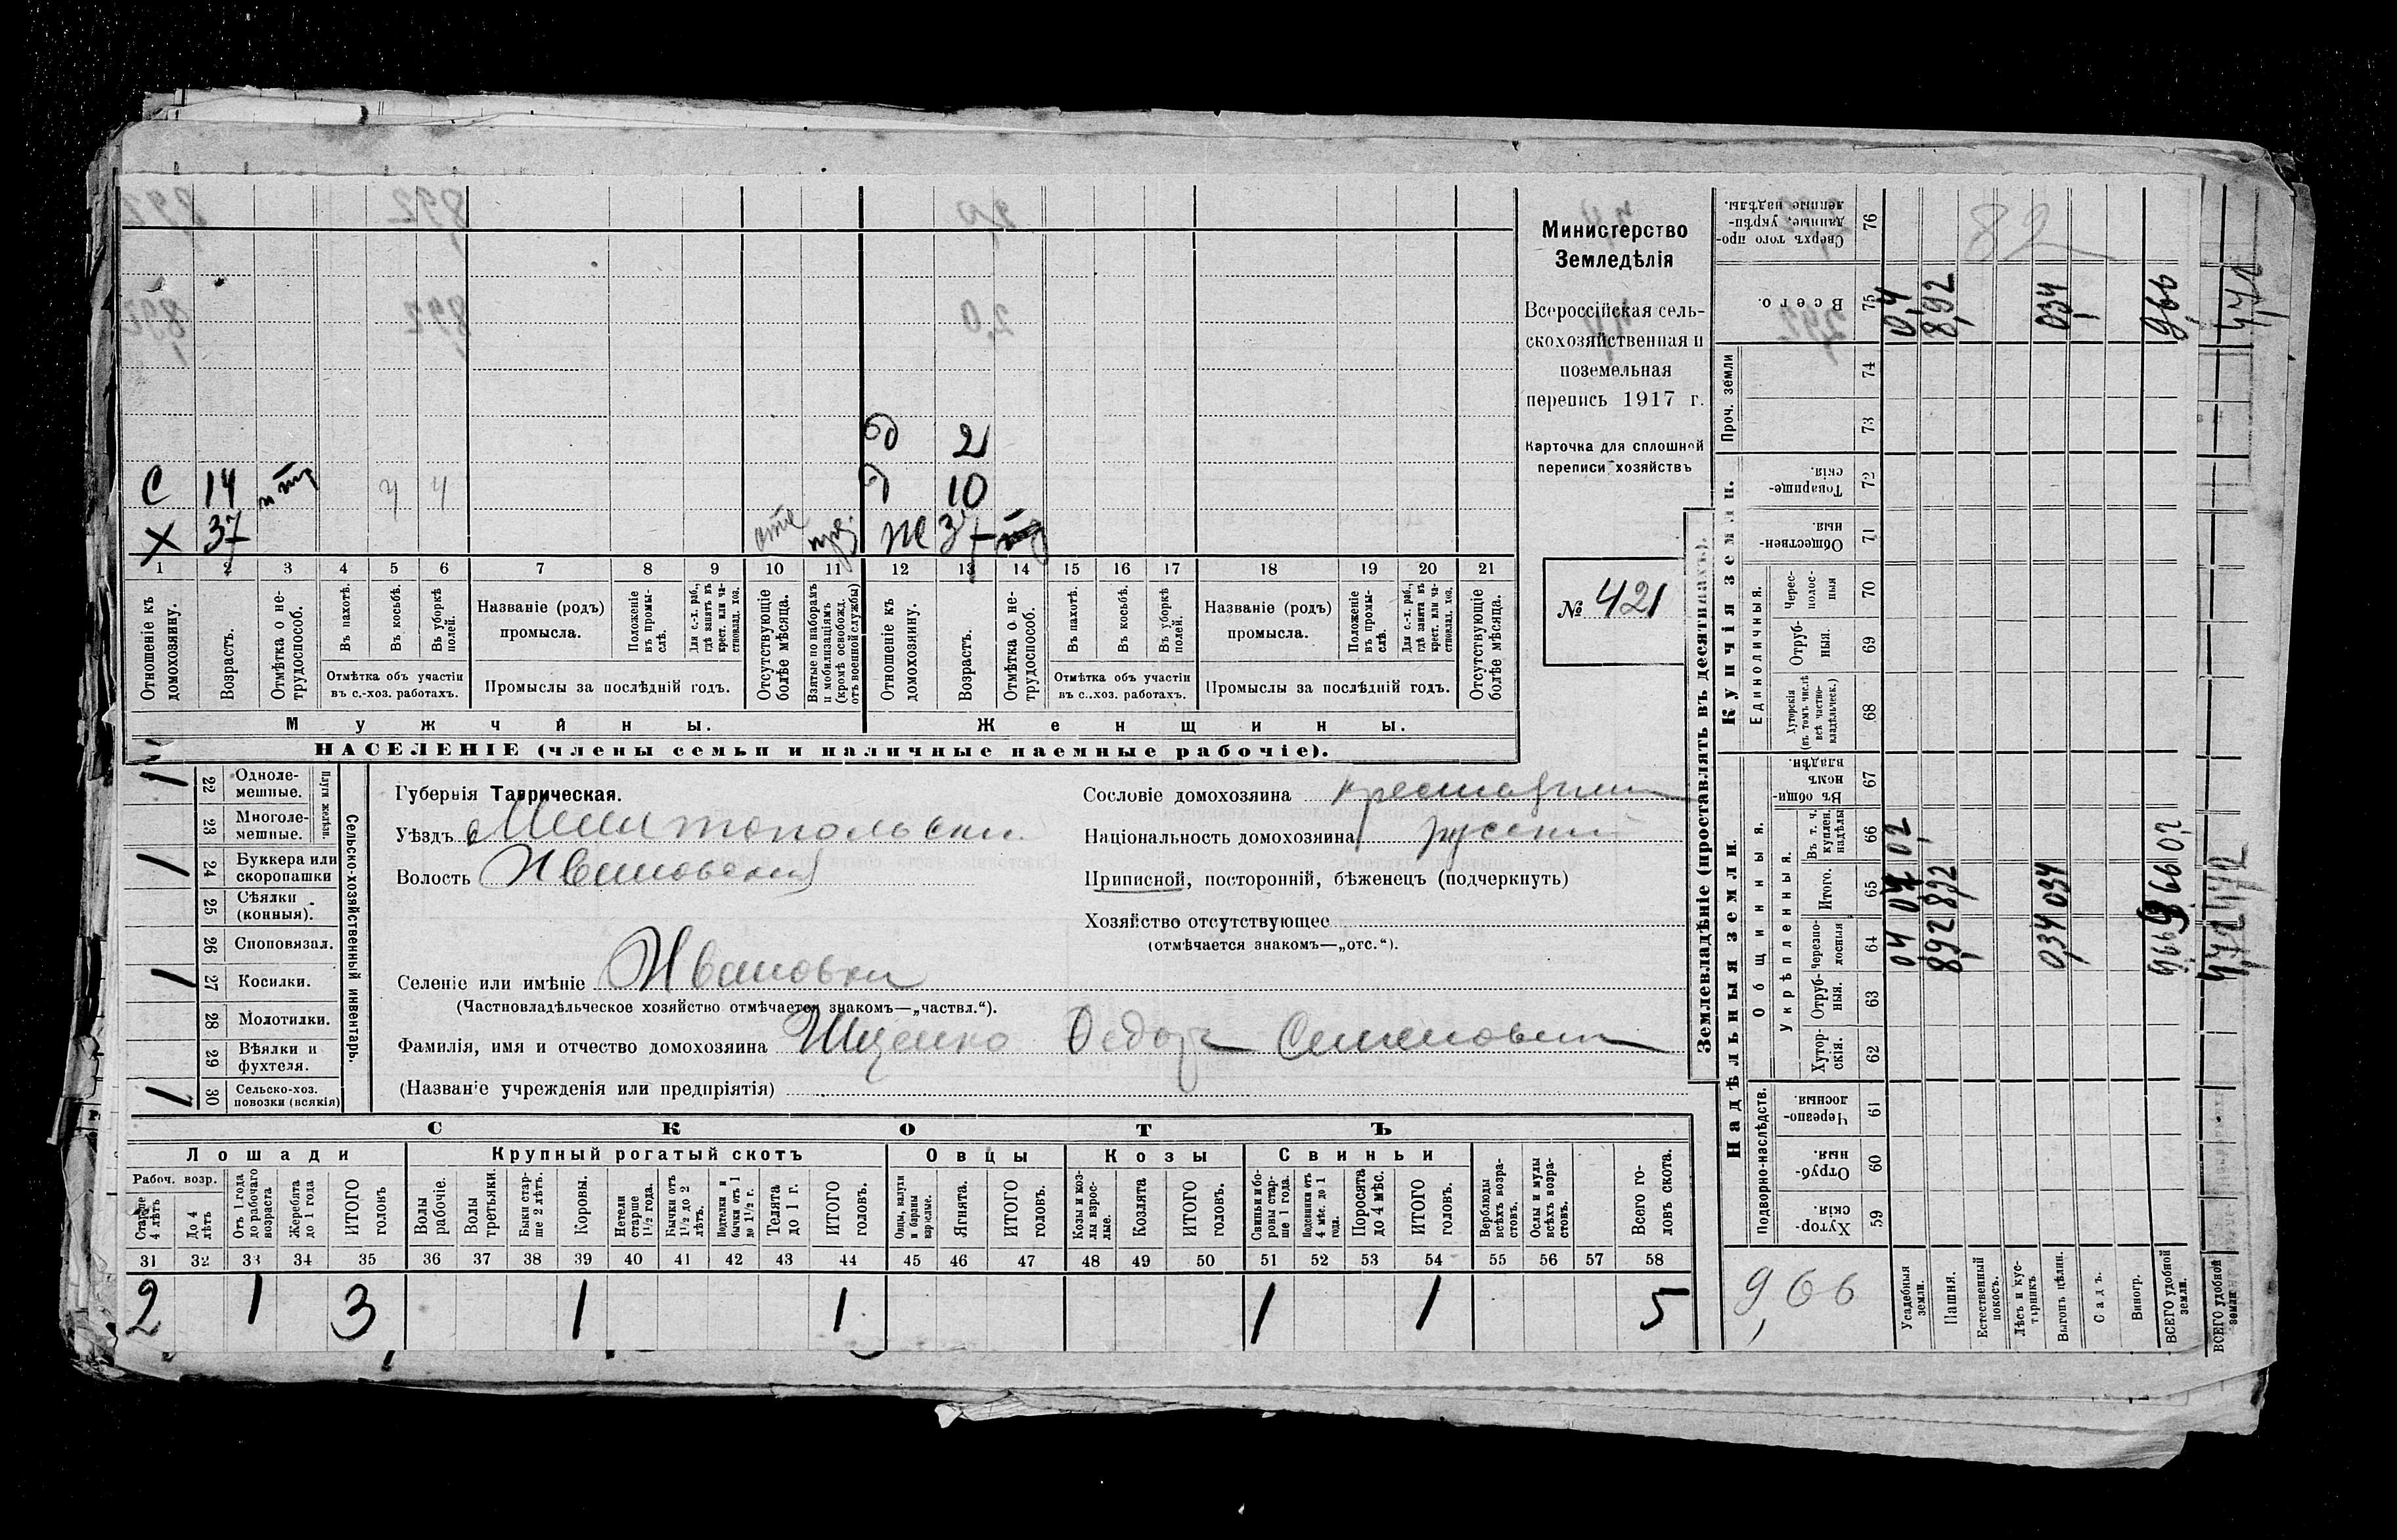 Министерство
Земледѣлія
Всероссійская сель-
скохозяйственная и
поземельная
перепись 1917 г.
Карточка для сплошной
переписи хозяйствъ
№ 421
д 2
С 14 д 10
Х 37 ж 37
1 2 3 4 5 6 7 8 9 10 11 12 13 14 15 16 17 18 19 20 21
Отношеніе къ домохозяину.
Возрастъ.
Отмѣтка о не-трудоспособ.
Въ пахотѣ.
Въ косьбѣ.
Въ уборкѣ полей.
Отмѣтка объ участіи
въ с.-хоз. работахъ.
Названіе (родъ)
промысла.
Положеніе въ промы-слѣ.
Для с.-х. раб., гдѣ занятъ въ крест. или ча-стновлад. хоз.
Промыслы за послѣдній годъ.
Отсутствующіе болѣе мѣсяца.
Взятые по наборамъ и мобилизаціямъ (кромѣ освобожд. отъ военной службы)
Отношеніе къ домохозяину.
Возрастъ.
Отмѣтка о не-трудоспособ.
Въ пахотѣ.
Въ косьбѣ.
Въ уборкѣ полей.
Отмѣтка объ участіи
въ с.-хоз. работахъ.
Названіе (родъ)
промысла.
Положеніе въ промы-слѣ.
Для с.-х. раб., гдѣ занята въ крест. или ча-стновлад. хоз.
Промыслы за послѣдній годъ.
Отсутствующіе болѣе мѣсяца.
Мужчины. Женщины.
НАСЕЛЕНІЕ (члены семьи и наличные наемные рабочіе).
Сельско-хозяйственный инвентарь.
Плуги желѣзн.
1 22 Одноле-мешные.
23 Многоле-мешные.
1 24 Буккера или скоропашки
25 Сѣялки (конныя).
26 Сноповязал.
1 27 Косилки.
28 Молотилки.
29 Вѣялки и фухтеля.
1 30 Сельско-хоз. повозки (всякія)
Губернія Таврическая.
Уѣздъ Мелитопольскій
Волость Ивановская
Селеніе или имѣніе Ивановка
(Частновладѣльческое хозяйство отмѣчается знакомъ—„частвл.“).
Фамилія, имя и отчество домохозяина Ищенко Федоръ Семеновичъ
(Названіе учрежденія или предпріятія)
Сословіе домохозяина крестьянинъ
Національность домохозяина русскій
Приписной, посторонній, бѣженецъ (подчеркнуть)
Хозяйство отсутствующее
(отмѣчается знакомъ—„отс.“).
СКОТЪ
Лошади Крупный рогатый скотъ Овцы Козы Свиньи
Рабоч. возр.
Старше 4 лѣтъ
До 4 лѣтъ
Отъ 1 года до рабочаго возраста
Жеребята до 1 года
ИТОГО головъ
Волы рабочіе.
Волы третьяки.
Быки стар-ше 2 лѣтъ.
Коровы.
Нетели старше 1½ года.
Бычки отъ 1½ до 2 лѣтъ.
Подтелки и бычки отъ 1 до 1½ г.
Телята до 1 г.
ИТОГО головъ.
Овцы, валухи и бараны взрослые.
Ягнята.
ИТОГО головъ.
Козы и коз-лы взрос-лые.
Козлята
ИТОГО головъ.
Свиньи и бо-ровы стар-ше 1 года.
Подсвинки отъ 4 мѣс. до 1 года.
Поросята до 4 мѣс.
ИТОГО головъ.
Верблюды всѣхъ возра-стовъ.
Ослы и мулы всѣхъ возра-стовъ.
Всего го-ловъ скота.
31 32 33 34 35 36 37 38 39 40 41 42 43 44 45 46 47 48 49 50 51 52 53 54 55 56 57 58
2 1 3 1 1 1 1 5
Землевладѣніе (проставлять въ десятинахъ).
Купчія земли.
Надѣльныя земли.
Проч. земли
Единоличныя.
Общинныя.
Укрѣпленныя.
Подворно-наслѣдств.
76 Сверхъ того про-данные, укрѣп-ленные надѣлы.
75 Всего.
74
73
72 Товарище-скія.
71 Обществен-ныя.
70 Черес-полос-ныя
69 Отруб-ныя.
68 Хуторскія (въ томъ числѣ всѣ частно-владѣльческ.)
67 Въ общин-номъ владѣн.
66 Въ т. ч. куплен. надѣлы
65 Итого.
64 Черезпо-лосныя
63 Отруб-ныя.
62 Хутор-скія.
61 Черезпо-лосныя.
60 Отруб-ныя.
59 Хутор-скія.
Усадебныя земли.
Пашня.
Естественный покосъ.
Лѣсъ и кус-тарникъ
Выгонъ цѣлин.
Садъ.
Виногр.
ВСЕГО удобной земли.
ВСЕГО удобной земли
82
0,4
8,92
0,34
9,66
0,4 0,2
8,92 8,92
0,34 0,34
9,66 9,66 0,2
9,66